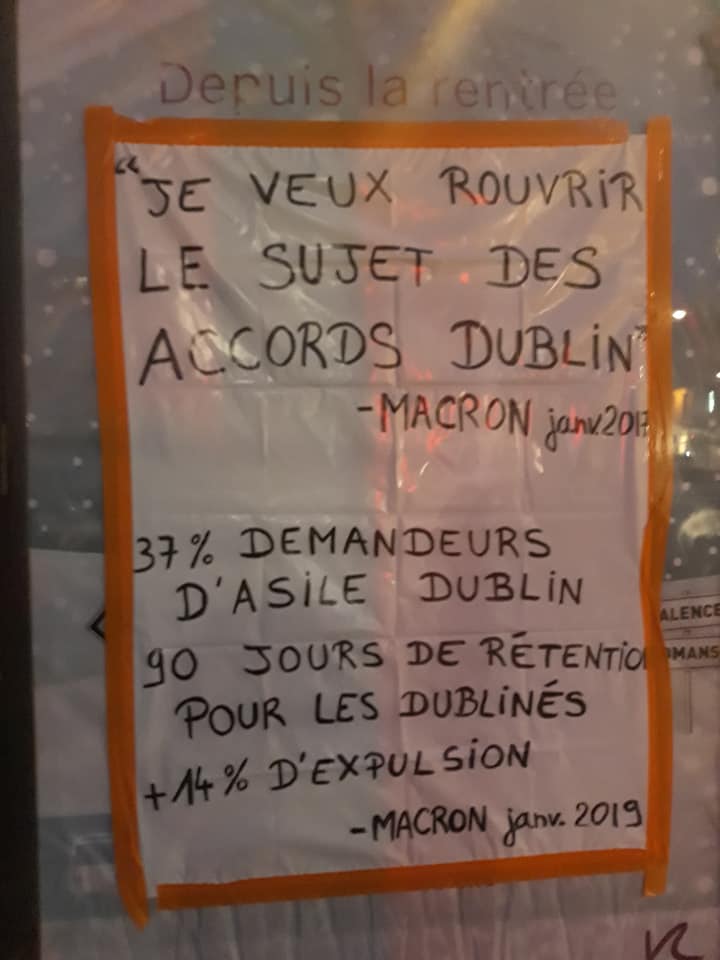 Depuis la rentrée
"JE VEUX ROUVRIR
LE SUJET DES
ACCORDS DUBLIN"
-MACRON janv.2017
37% DEMANDEURS
D'ASILE DUBLIN
90 JOURS DE RÉTENTION
POUR LES DUBLINÉS
+14% D'EXPULSION
-MACRON janv. 2019
ALENCE
OMANS